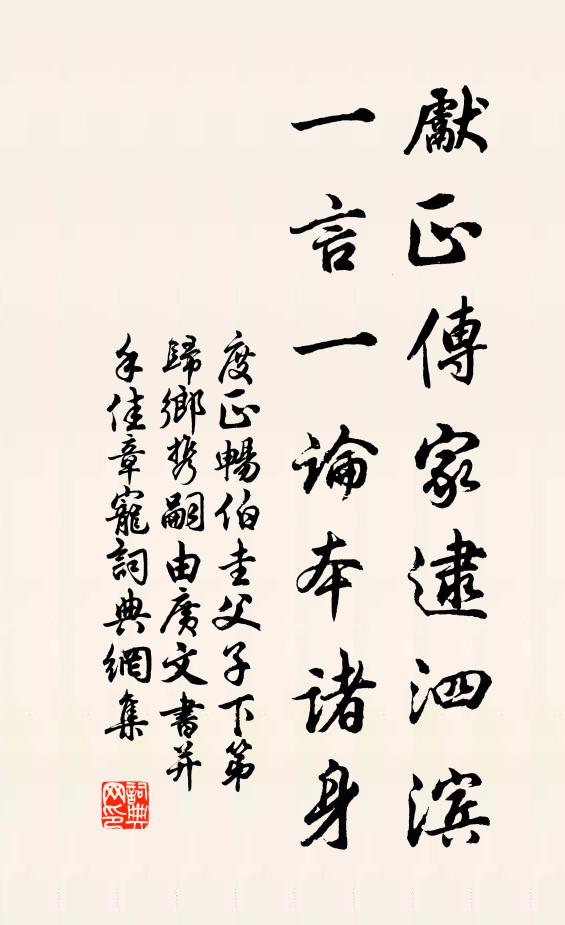 獻正傳家逮泗滨
一言一論本诸身
度正暢伯圭父子下第
歸鄉携嗣由廣文書并
手佳章寵詞典網集
詞典网印